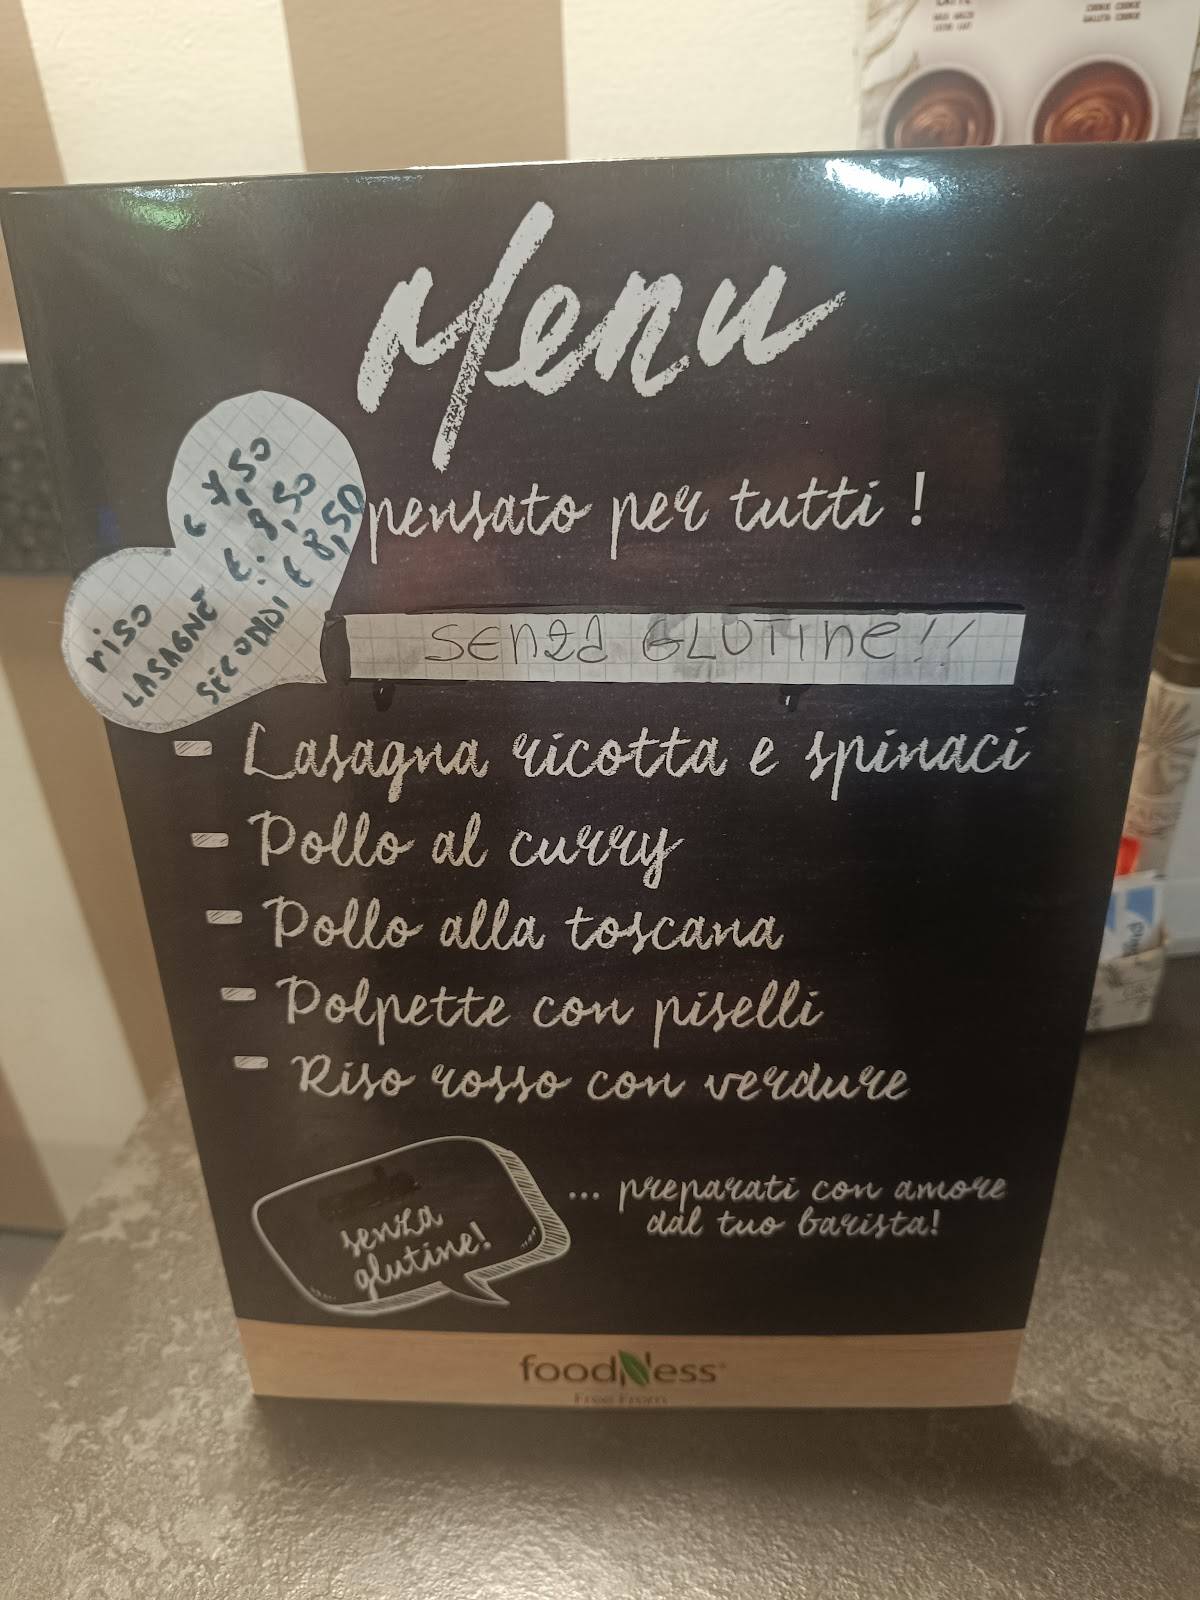 Menu
pensato per tutti !
riso € 7,50
LASAGNE €. 8,50
SECONDI € 8,50
SENZA GLUTINE!!
- Lasagna ricotta e spinaci
- Pollo al curry
- Pollo alla toscana
- Polpette con piselli
- Riso rosso con verdure
senza
glutine!
... preparati con amore
dal tuo barista!
foodNess
Free From